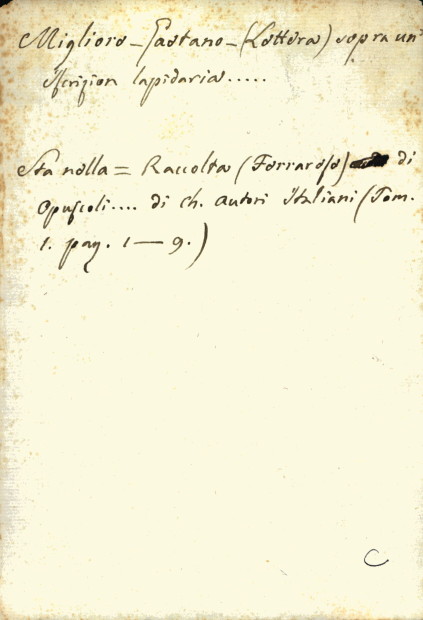 Migliore - Gaetano - (Lettera) sopra un'
Iscrizion lapidaria.....
Sta nella = Raccolta (Ferrarese) di
Opuscoli.... di ch. autori Italiani (Tom.
1. pag. 1 — 9.)
C